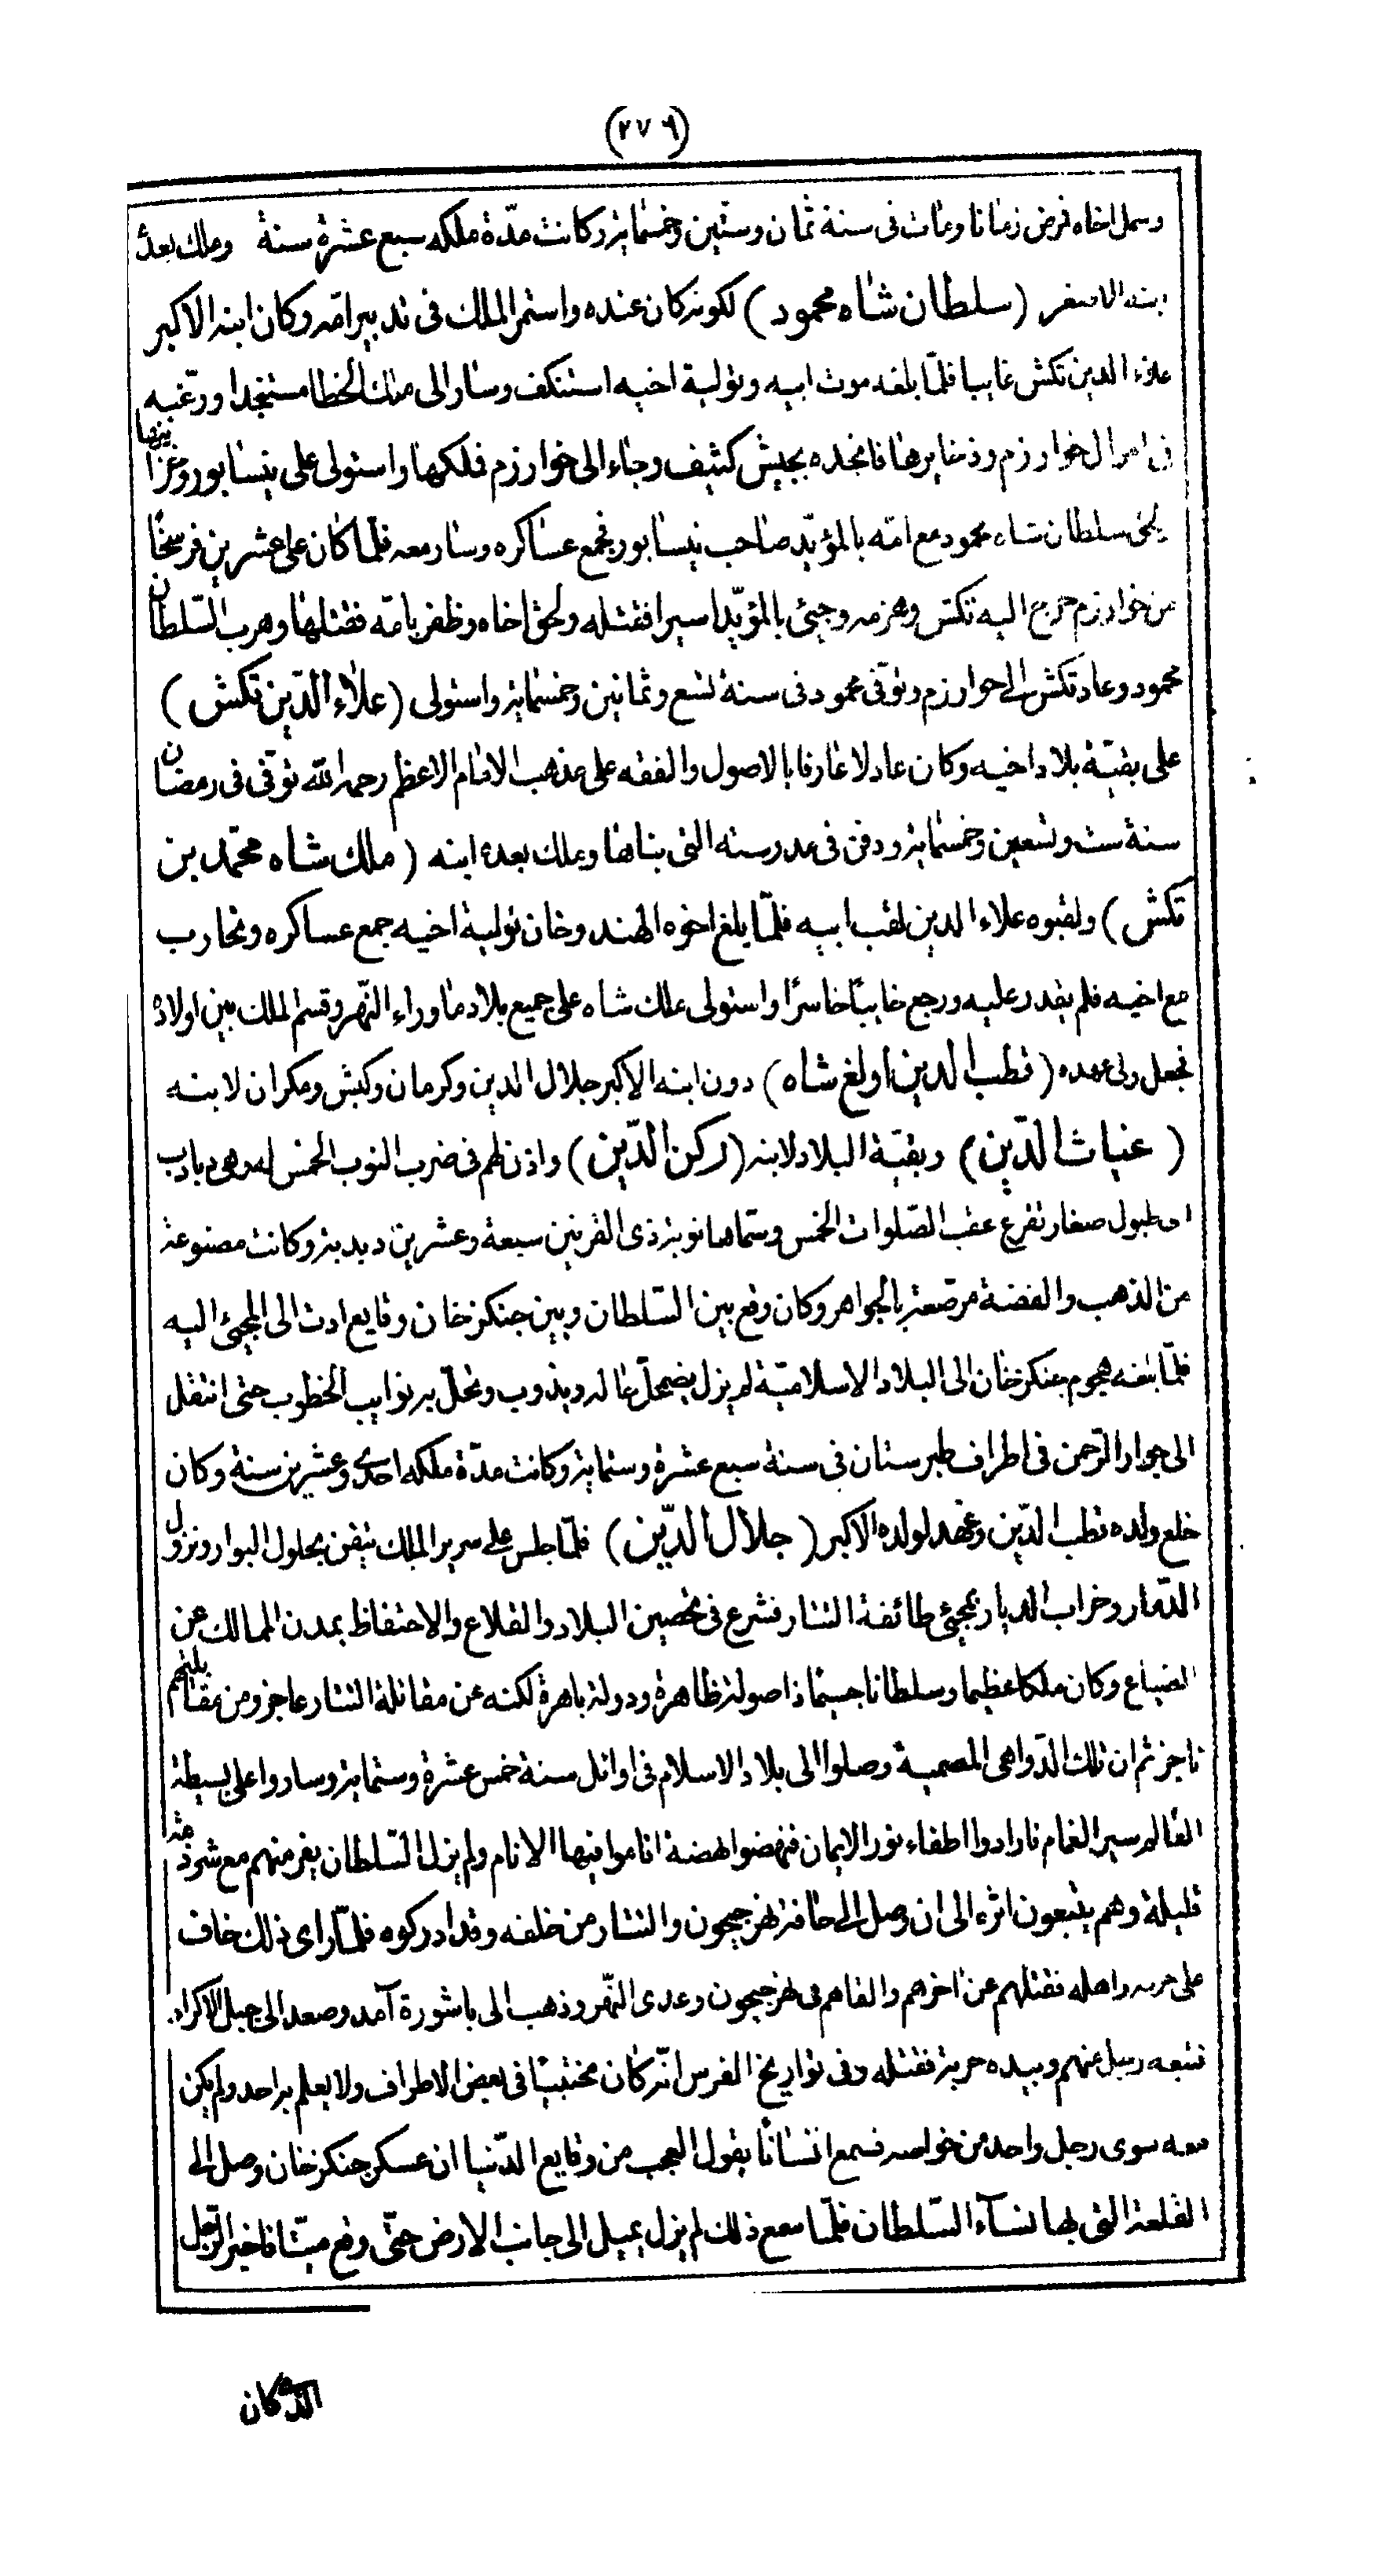 (٢٧٩)
وسمل اخاه فرض زمانا ومات فى سنة ثمان وستين وخمسماية وكانت مدّة ملكه سبع عشرة سنة وملك بعده
ابنه الاصغر (سلطان شاه محمود) لكونه كان عنده واستمر الملك فى تدبير امّه وكان ابنه الاكبر
علاء الدين تكش غايبا فلمّا بلغه موت ابيه وتولية اخيه استنكف وسار الى ملك الخطا مستنجدا ورغّبه
فى اموال خوارزم وذخايرها فانجده بجيش كثيف وجاء الى خوارزم فملكها واستولى على نيسابور وغيرها
لحق سلطان شاه محمود مع امّه بالمؤيّد صاحب نيسابور فجمع عساكره وسار معه فلمّا كان على عشرين فرسخًا
من خوارزم خرج اليه تكش وهزمه وجيئ بالمؤيّد اسيرا فقتله ولحق اخاه وظفر بامّه فقتلها وهرب السّلطان
محمود وعاد تكش الى خوارزم وتوفّى محمود فى سنة تسع وثمانين وخمسماية واستولى (علاء الدّين تكش)
على بقيّة بلاد اخيه وكان عادلا عارفا بالاصول والفقه على مذهب الامام الاعظم رحمه الله توفّى فى رمضان
سنة ست وتسعين وخمسماية ودفن فى مدرسته التى بناها وملك بعده ابنه (ملك شاه محمّد بن
تكش) ولقبوه علاء الدين لقب ابيه فلمّا بلغ اخوه الهند وخان تولية اخيه جمع عساكره وتحارب
مع اخيه فلم يقدر عليه ورجع خايبًا خاسرًا واستولى ملك شاه على جميع بلاد ماوراء النّهر وقسم الملك بين اولاده
فجعل ولى عهده (قطب الدين اولغ شاه) دون ابنه الاكبر جلال الدين وكرمان وكيش ومكران لابنه
(غياث الدّين) وبقيّة البلاد لابنه (ركن الدّين) واذن لهم فى ضرب النوب الخمس له وهى دبادب
اى طبول صغار تقرع عقب الصّلوات الخمس وسمّاها نوبة ذى القرنين سبعة وعشرين دبدبة وكانت مصنوعة
من الذهب والفضة مرصّعة بالجواهر وكان وقع بين السّلطان وبين جنكز خان وقايع ادت الى المجئ اليه
فلمّا بلغه هجوم جنكز خان الى البلاد الاسلاميّة لم يزل يضمحلّ حاله ويذوب وتحلّ به نوايب الخطوب حتى انتقل
الى جوار الرّحمن فى اطراف طبرستان فى سنة سبع عشرة وستماية وكانت مدّة ملكه احدى وعشرين سنة وكان
خلع ولده قطب الدّين وعهد لولده الاكبر (جلال الدّين) فلمّا جلس على سرير الملك تيقن بحلول البوار ونزول
الدّمار وخراب الديار بمجئ طائفة التتار فشرع فى تحصين البلاد والقلاع والاحتفاظ بمدن الممالك عن
الضياع وكان ملكا عظيما وسلطانا جسيمًا ذا صولة ظاهرة ودولة باهرة لكنه عن مقاتلة التتار عاجز ومن مقابلتهم
ناجز ثم ان تلك الدّواهى المصمية وصلوا الى بلاد الاسلام فى اوائل سنة خمس عشرة وستماية وساروا على بسيطة
العالم سير الغمام فارادوا اطفاء نور الايمان فنهضوا لهضة اناموا فيها الانام ولم يزل السّلطان يفر منهم مع شرذمة
قليلة وهم يتبعون اثره الى ان وصل الى حافة نهر جيحون والتتار من خلفه وقد ادركوه فلمّا راى ذلك خاف
على حرمه واهله فقتلهم عن اخرهم والقاهم فى نهر جيحون وعدى النّهر وذهب الى باشورة آمد وصعد الى جبل الاكراد
فتبعه رجل منهم وبيده حربة فقتله وفى تواريخ الفرس انّه كان مختبيًا فى بعض الاطراف ولا يعلم به احد ولم يكن
معه سوى رجل واحد من خواصه فسمع انسانًا يقول العجب من وقايع الدّنيا ان عسكر جنكز خان وصل الى
القلعة التى بها نسآء السّلطان فلمّا سمع ذلك لم يزل يميل الى جانب الارض حتّى وقع ميتًا فاخبر الرّجل
الذى كان